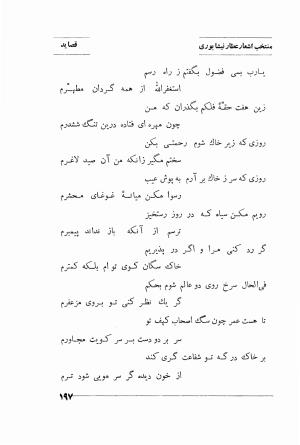 منتخب اشعار عطار نیشابوری
قصاید
یارب بسی فضول بگفتم ز راه رسم
استغفرالله از همه کردان مطهّرم
زین هفت حقهٔ فلکم بگذران که من
چون مهره‌ای فتاده درین تنگ ششدرم
روزی که زیر خاک شوم رحمتی بکن
سختم مگیر زانکه من آن صید لاغرم
روزی که سر ز خاک بر آرم به پوش عیب
رسوا مکن میانهٔ غوغای محشرم
رویم مکن سیاه که در روز رستخیز
ترسم از آنکه باز نداند پیمبرم
گر رد کنی مرا و اگر در پذیریم
خاک سگان کوی توام بلکه کمترم
فی‌الحال سرخ روی دو عالم شوم بحکم
گر یک نظر کنی تو بروی مزعفرم
تا هست عمر چون سگ اصحاب کهف تو
سر بر دو دست بر سر کویت مجاورم
بر خاک درگه تو شفاعت گری کند
از خون دیده گر سر مویی شود ترم
۱۹۷